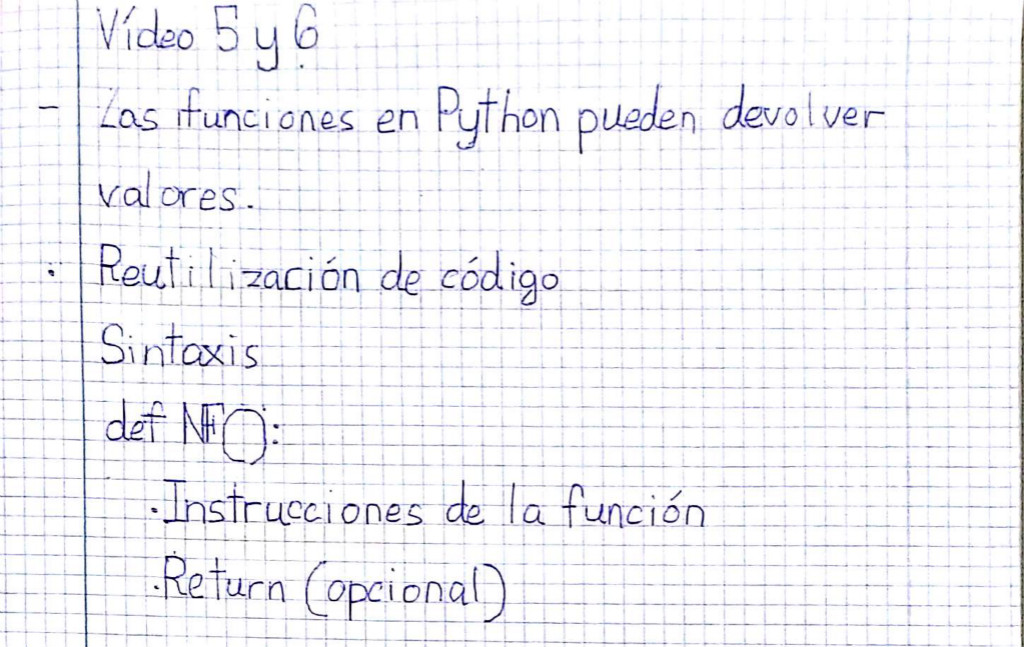 Vídeo 5 y 6
- Las funciones en Python pueden devolver
valores.
· Reutilización de código
Sintaxis
def NF():
· Instrucciones de la función
· Return (opcional)